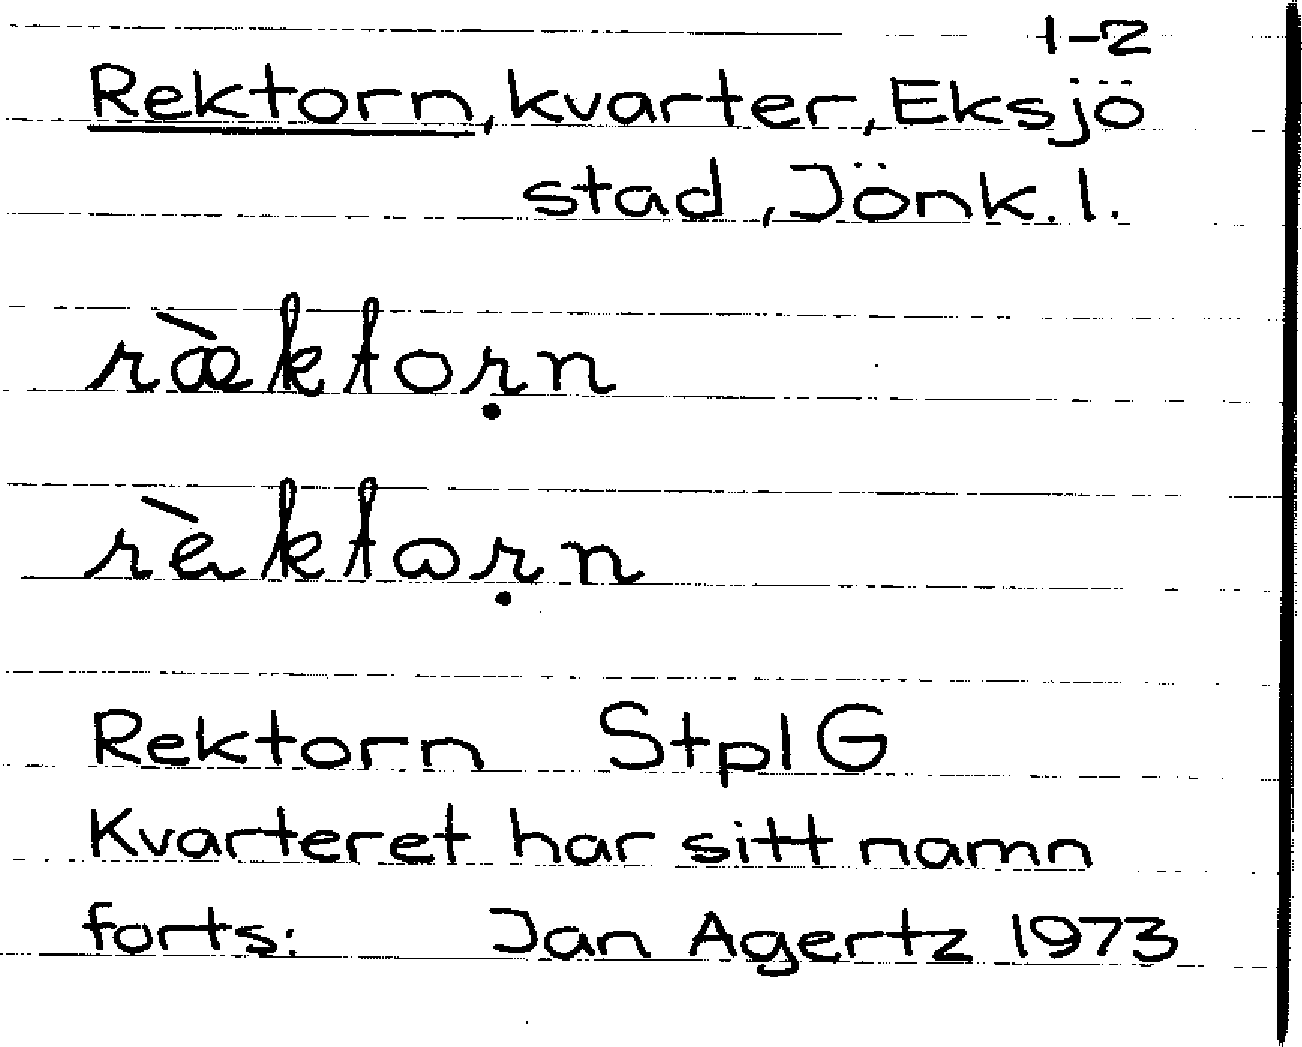 1-2
Rektorn, kvarter, Eksjö
stad, Jönk. l.
ræ̀ktoṛn
rèktɷṛn
Rektorn StplG
Kvarteret har sitt namn
forts: Jan Agertz 1973